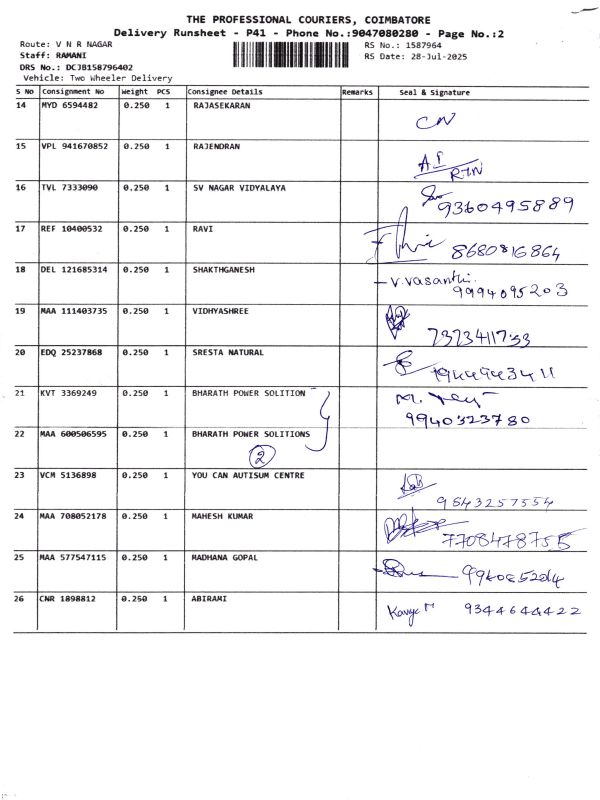 THE PROFESSIONAL COURIERS, COIMBATORE
Delivery Runsheet - P41 - Phone No.:9047080280 - Page No.:2
Route: V N R NAGAR
RS No.: 1587964
Staff: RAMANI
RS Date: 28-Jul-2025
DRS No.: DCJB158796402
Vehicle: Two Wheeler Delivery
S No Consignment No Weight PCS Consignee Details Remarks Seal & Signature
14 MYD 6594482 0.250 1 RAJASEKARAN
CN
15 VPL 941670852 0.250 1 RAJENDRAN
16 TVL 7333090 0.250 1 SV NAGAR VIDYALAYA
9360495889
17 REF 10400532 0.250 1 RAVI
8680816864
18 DEL 121685314 0.250 1 SHAKTHGANESH
V. Vasanthi
9994095203
19 MAA 111403735 0.250 1 VIDHYASHREE
20 EDQ 25237868 0.250 1 SRESTA NATURAL
21 KVT 3369249 0.250 1 BHARATH POWER SOLITION
9940323780
22 MAA 600506595 0.250 1 BHARATH POWER SOLITIONS
2
23 VCM 5136898 0.250 1 YOU CAN AUTISUM CENTRE
9843257554
24 MAA 708052178 0.250 1 MAHESH KUMAR
7708478755
25 MAA 577547115 0.250 1 MADHANA GOPAL
26 CNR 1898812 0.250 1 ABIRAMI
9344644422